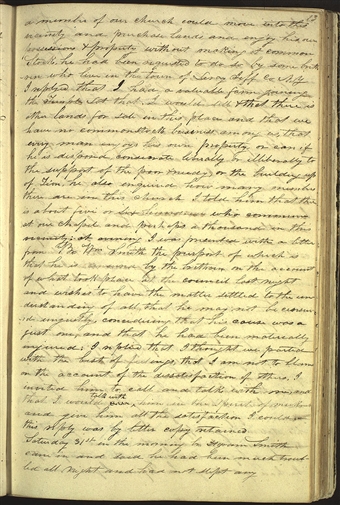 a member of our church could move into this
vicinity and purchase lands and enjoy his own
possessions & property without making it common
Stock, he had been requested to do so by some breth-
ren who live in the town of Leroy Jeff Co N.Y.
I replied that I had a valuable farm joining
the Temple Lot that I would sell & that there is
other lands for sale in this place and that we
have no commonstock business among us, that
every man enjoys his own property, or can if
he is disposed, consecrate liberally or illiberally to
the support of the poor & needy, or the building up
of Zion, he also enquired how many members
there are in this church I told him that there
is about five or six hundred who commune
at our chapel and perhaps a thousand in this
vicinity; at evening I was presented with a letter
from Br Wm Smith the purport of which is
that he is censured by the brethren on the account
of what took place at the council last night
and wishes to have the matter settled to the un
derstanding of all, that he may not be censur
ed unjustly, considering that his cause was a
just one, and that he had been materially
injured; I replied that I thought we parted
with the best of feelings, that I am not to blame
on the account of the dissatisfaction of others, I
invited him to call and talk with me, and
that I would talk with him in the spirit of meekness
and give him all the satisfaction I could.—
this reply was by letter copy retained
Saturday 31st in the morning br Hyram Smith
came in and said he had been much troub
led all night and had not slept any